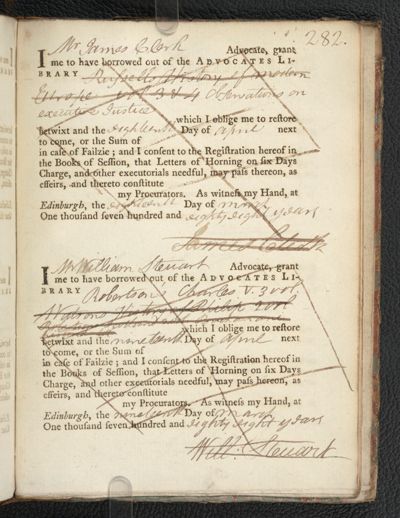 282.
I Mr James Clerk Advocate, grant
me to have borrowed out of the ADVOCATES LI-
BRARY Russells History of modern
Europe vol 3 & 4 Observations on
executive Justice
which I oblige me to restore
betwixt and the eighteenth Day of april next
to come, or the Sum of
in case of Failzie; and I consent to the Registration hereof in
the Books of Session, that Letters of Horning on six Days
Charge, and other executorials needful, may pass thereon, as
effeirs, and thereto constitute
my Procurators. As witness my Hand, at
Edinburgh, the eighteenth Day of march
One thousand seven hundred and eighty eight years
James Clerk
I Mr William Steuart Advocate, grant
me to have borrowed out of the ADVOCATES LI-
BRARY Robertsons Charles V. 3 vol;
Watsons History of Philip 2 vol
which I oblige me to restore
betwixt and the nineteenth Day of april next
to come, or the Sum of
in case of Failzie; and I consent to the Registration hereof in
the Books of Session, that Letters of Horning on six Days
Charge, and other executorials needful, may pass hereon, as
effeirs, and thereto constitute
my Procurators. As witness my Hand, at
Edinburgh, the nineteenth Day of march
One thousand seven hundred and eighty eight years
Will: Steuart